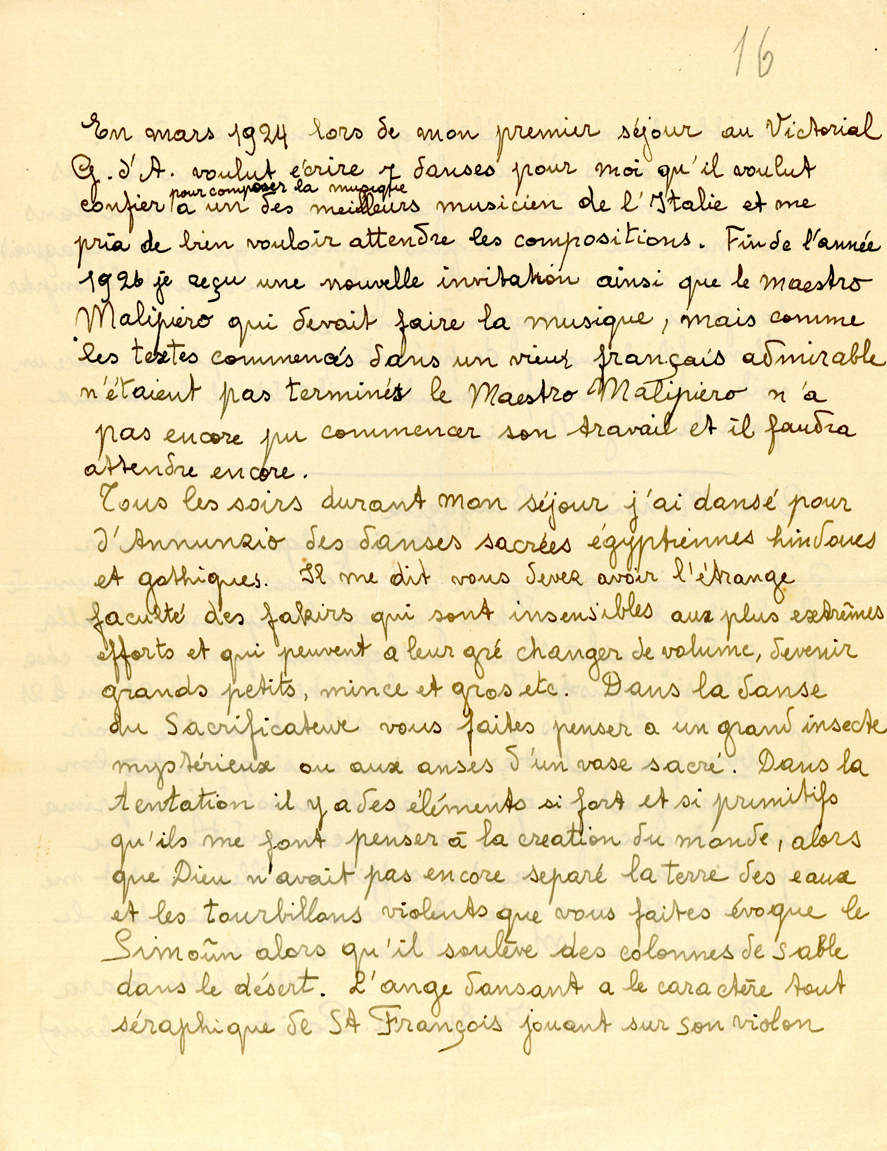 16
En mars 1924 lors de mon premier séjour au Victorial
G. d'A. voulut écrire 7 danses pour moi qu'il voulut
pour composer la musique
confier à un des meilleurs musicien de l'Italie et me
pria de bien vouloir attendre les compositions. Fin de l'année
1926 je reçu une nouvelle invitation ainsi que le maestro
Malipiero qui devait faire la musique, mais comme
les textes commencés dans un vieux français admirable
n'étaient pas terminés le Maestro Malipiero n'a
pas encore pu commencer son travail et il faudra
attendre encore.
Tous les soirs durant mon séjour j'ai dansé pour
d'Annunzio des danses sacrées égyptiennes hindoues
et gothiques. Il me dit vous devez avoir l'étrange
faculté des fakirs qui sont insensibles aux plus extrêmes
efforts et qui peuvent a leur gré changer de volume, devenir
grands petits, mince et gros etc. Dans la danse
du Sacrificateur vous faites penser a un grand insecte
mystérieux ou aux anses d'un vase sacré. Dans la
tentation il y a des éléments si fort et si primitifs
qu'ils me font penser à la creation du monde, alors
que Dieu n'avait pas encore separé la terre des eaux
et les tourbillons violents que vous faites évoque le
Simoün alors qu'il soulève des colonnes de sable
dans le désert. L'ange dansant a le caractère tout
séraphique de St François jouant sur son violon